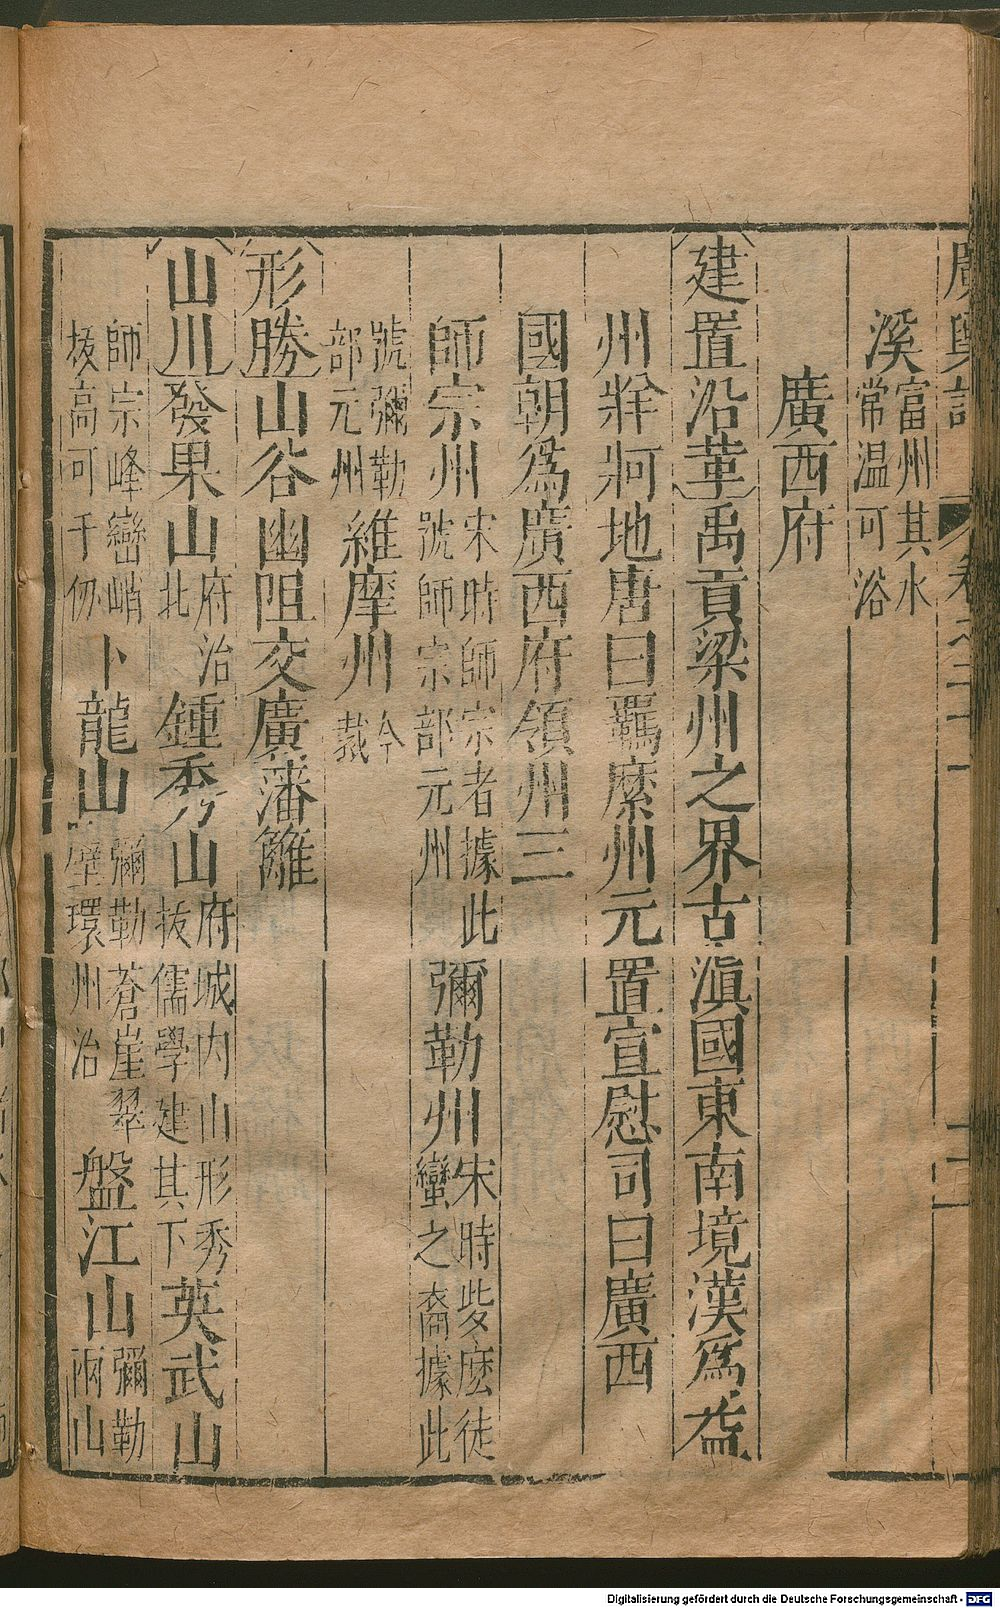 廣輿記 卷之二十一 十二
溪富州其水常温可浴
廣西府
建置沿革禹貢梁州之界古滇國東南境漢為益
州牂牁地唐曰羈縻州元置宣慰司曰廣西
國朝為廣西府領州三
師宗州宋時師宗者據此號師宗部元州彌勒州宋時些麽徒蠻之裔據此
號彌勒部元州維摩州今裁
形勝山谷幽阻交廣藩籬
山川發果山府治北鍾秀山府城内山形秀拔儒學建其下英武山
師宗峰巒峭拔高可千仞卜龍山彌勒蒼崖翠壁環州治盤江山彌勒兩山
Digitalisierung gefördert durch die Deutsche Forschungsgemeinschaft - DFG